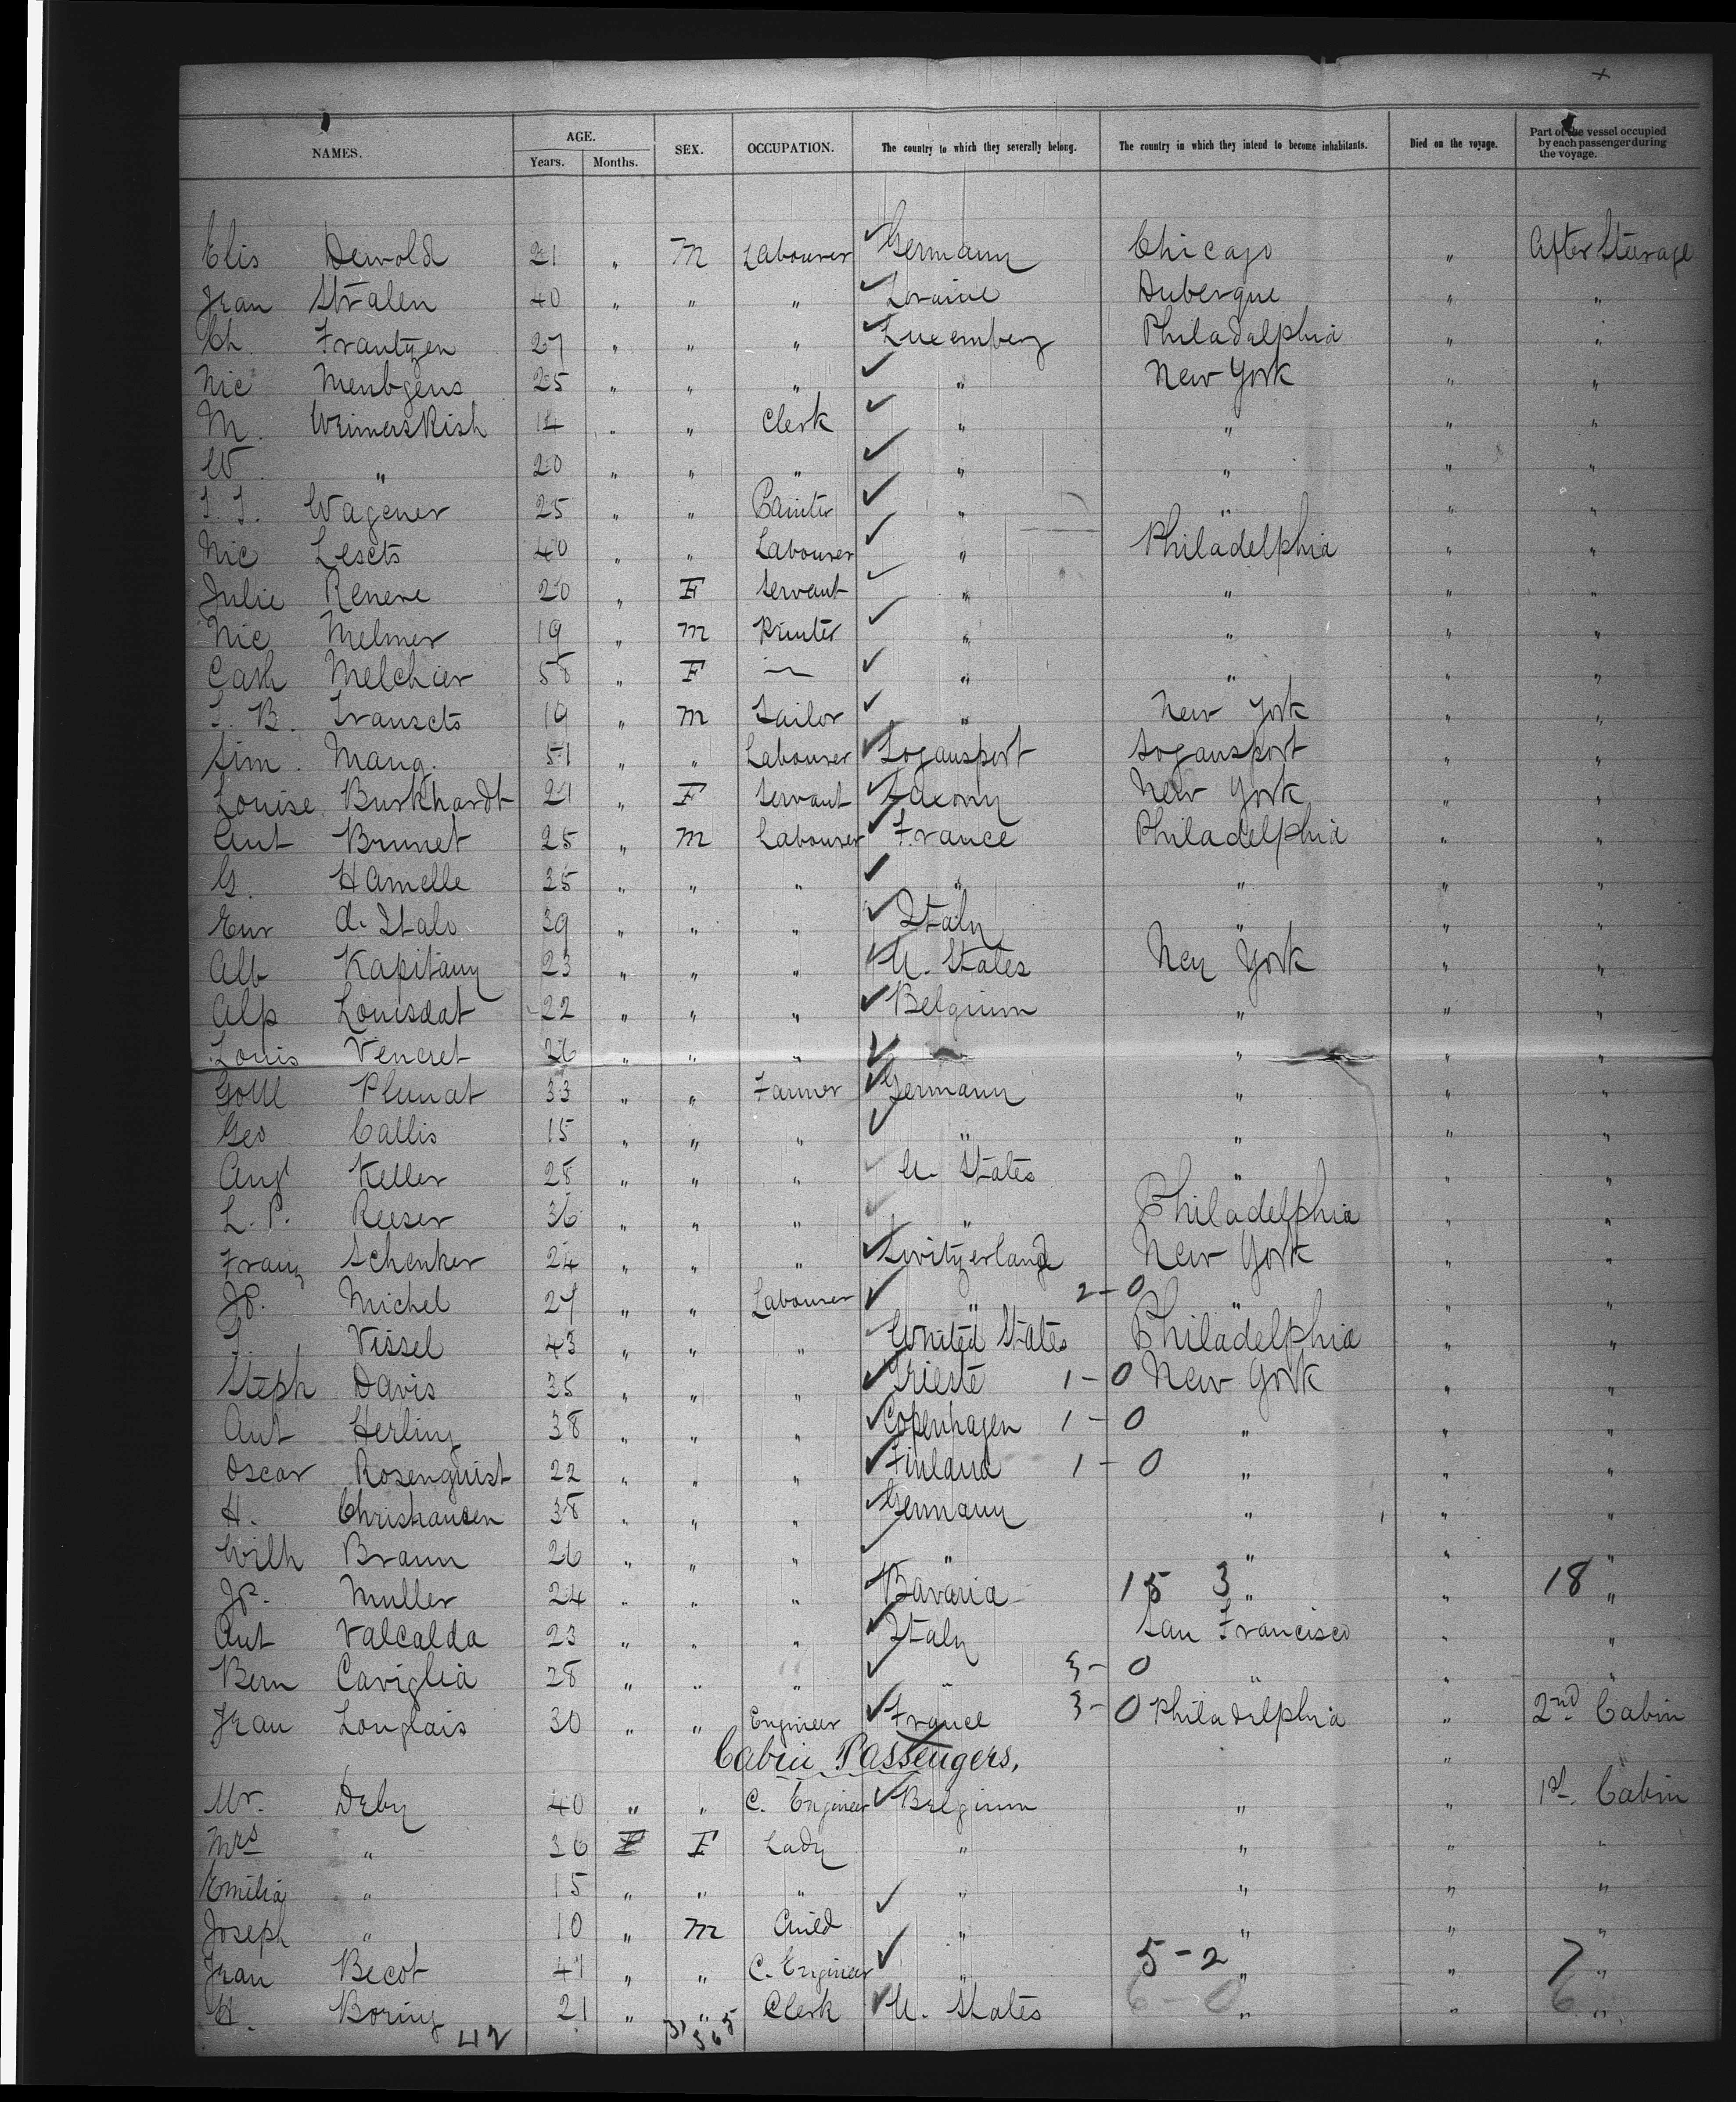 +
NAMES. AGE. Years. Months. SEX. OCCUPATION. The country to which they severally belong. The country in which they intend to become inhabitants. Died on the voyage. Part of the vessel occupied by each passenger during the voyage.
Elis Dewold 21 " M Labourer Germany Chicago " After Steerage
Jean Stralen 40 " " " Loraine Duberque " "
Ch. Frantzen 27 " " " Luxemberg Philadalphia " "
Nic Mentgens 25 " " " " New York " "
M. Weimerskish 14 " " Clerk " " " "
W. " 20 " " " " " " "
J. J. Wagener 25 " " Painter " " " "
Nic Lescts 40 " " Labourer " Philadelphia " "
Julie Renere 20 " F Servant " " " "
Nic Melmer 19 " M Printer " " " "
Cath Melchier 58 " F — " " " "
J. B. Franscts 19 " M Tailor " New York " "
Sim. Mang. 51 " " Labourer Logansport Logansport " "
Louise Burkhardt 21 " F Servant Saxony New York " "
Ant Brunet 25 " M Labourer France Philadelphia " "
G. Hamelle 35 " " " " " " "
Eur d. Italo 39 " " " Italy " " "
Alb Kapitany 23 " " " U. States New York " "
Alp Louisdat 22 " " " Belgium " " "
Louis Vencret 26 " " " " " "
Gottl Plunat 33 " " Farmer Germany " " "
Geo Callis 15 " " " " " " "
Aug Keller 28 " " " U. States " " "
L. P. Reeser 36 " " " " Philadelphia " "
Franz Schenker 24 " " " Switzerland New York " "
JP. Michel 27 " " Labourer " 2-0 " " "
J. Vissel 43 " " " United States Philadelphia " "
Steph Davis 35 " " " Trieste 1-0 New York " "
Ant Herling 38 " " " Copenhagen 1-0 " " "
Oscar Rosenquist 22 " " " Finland 1-0 " " "
H. Christiansen 38 " " " Germany " " "
Wilh Braun 26 " " " " " " "
JP. Muller 24 " " " Bavaria 15 3 " " 18 "
Ant Valcalda 23 " " " Italy San Francisco " "
Bern Caviglia 28 " " " " 3-0 " " "
Jean Longlais 30 " " Engineer France 3-0 Philadelphia " 2nd Cabin
Cabin Passengers. "
Mr. Deby 40 " " C. Engineer Belgium " " 1st. Cabin
Mrs " 36 F Lady " " " "
Emilia " 15 " " " " " " "
Joseph " 10 " M Child " " " "
Jean Becot 41 " " C. Engineer " 5-2 " " 7 "
H. Boring 21 " " Clerk U. States 6-0 " " 6 "
42 31 565